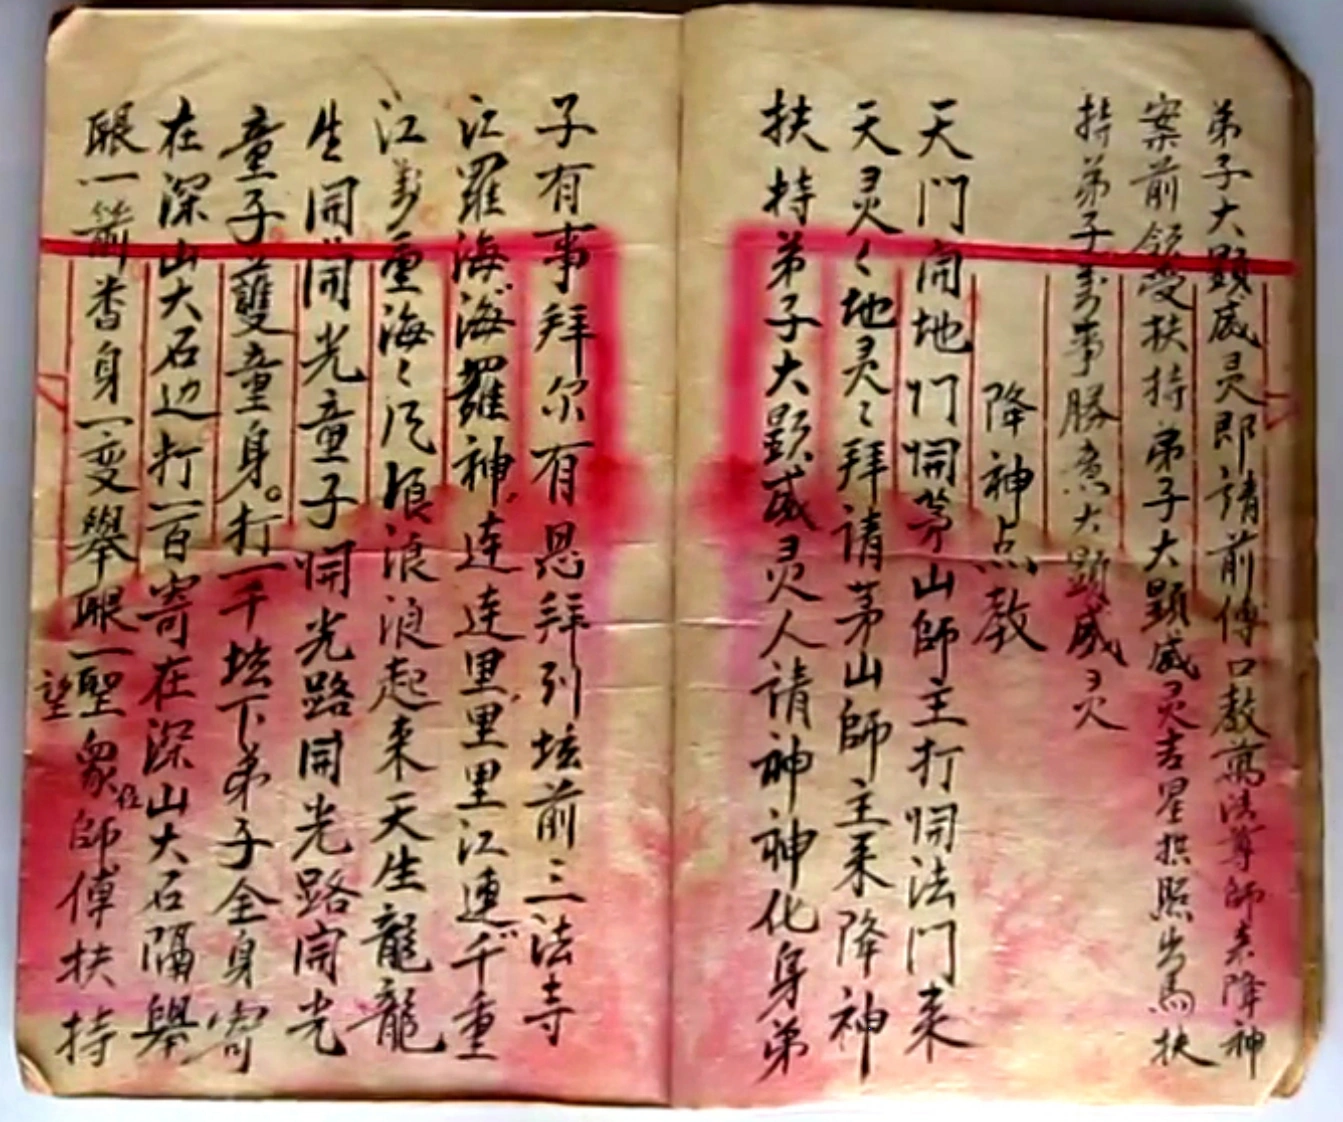 弟子大顕威灵即請前傳口教萬法尊師来降神
案前領受扶持弟子大顕威灵吉星拱照出馬扶
持弟子事勝意大顕威灵
降神点教
天門開地门開茅山師主打開法門来
天灵〻地灵〻拜請茅山師主来降神
扶持弟子大顕威灵人請神神化身弟
子有事拜尔有恩拜列坛前三法寺
江羅海海羅神連連里里里江連千重
江重海〻浪浪浪起来天生龍龍
生開開光童子開光路開光路開光
童子雙童身。打一千坛下弟子全身寄
在深山大石边打一百寄在深山大石隔舉
眼一箭香身一变舉眼一望聖眾位師傅扶持